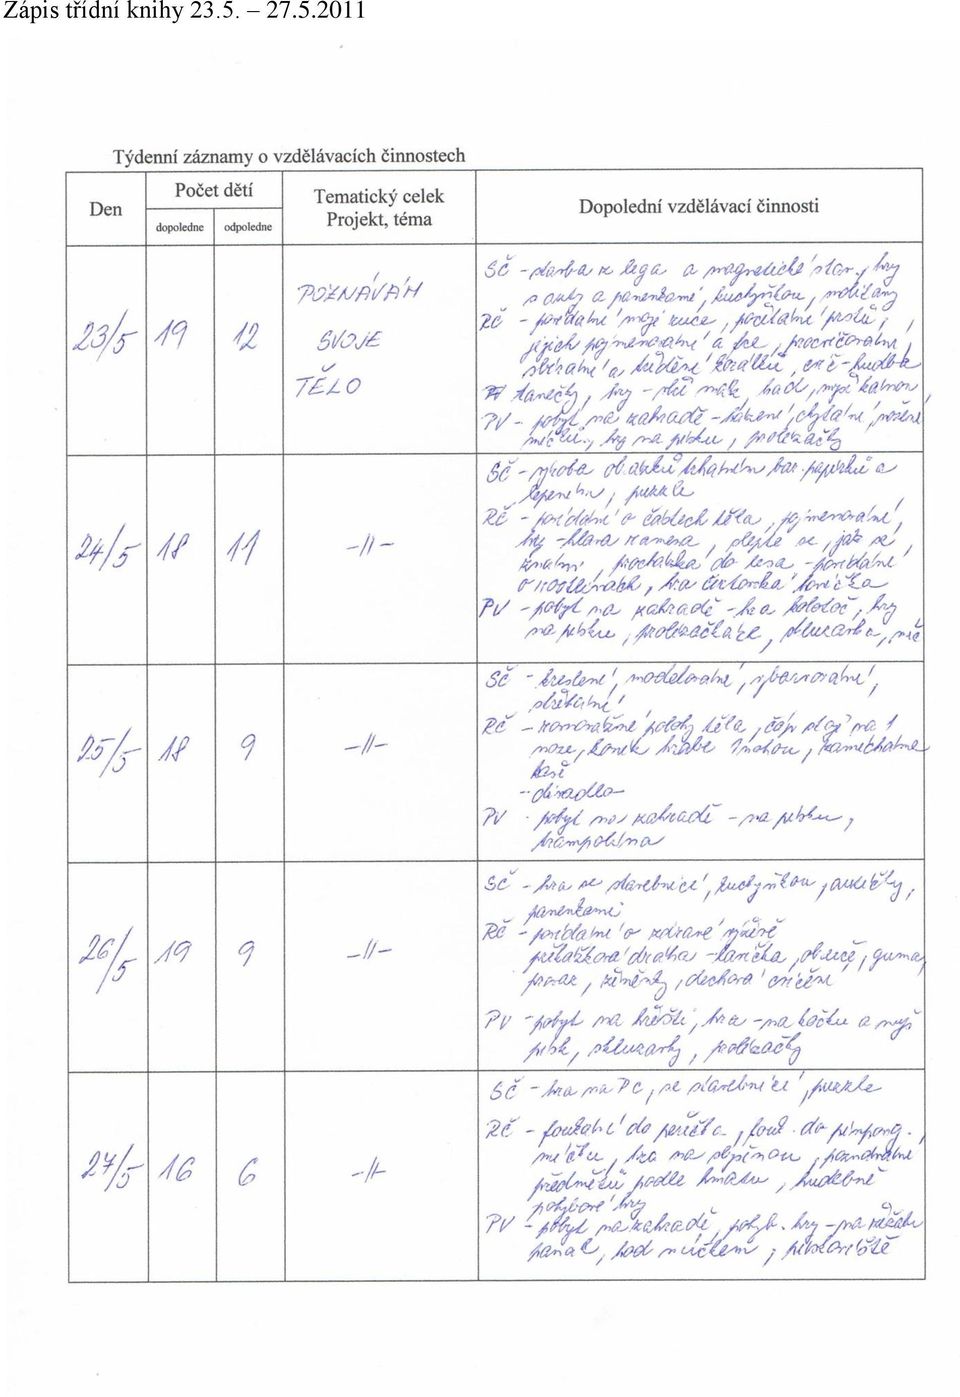 Zápis třídní knihy 23.5. – 27.5.2011
Týdenní záznamy o vzdělávacích činnostech
Den
Počet dětí
dopoledne odpoledne
Tematický celek
Projekt, téma
Dopolední vzdělávací činnosti
23/5 19 12
POZNÁVÁM
SVOJE
TĚLO
SČ - stavba z lega a magnetické stav., hry
s auty a panenkami, kuchyňkou, molitany
ŘČ - povídání moje ruce, počítání prstů,
jejich pojmenování a fce, procvičování,
sbírání a třídění korálků, cvič - hudba
tanečky, hry - had, kámen,
PV - pobyt na zahradě - házení, chytání, nošení
míčků, hry na písku, prolézačky
24/5 18 11 -//-
SČ - výroba obrázků trháním bar. papírků a
lepením, puzzle
ŘČ - povídání o částech těla, pojmenování,
hry - hlava ramena, slepte se, jak se
znáni, procházka do lesa - povídání
o rostlinách, hra čiktorka lavička
PV - pobyt na zahradě - hra kolotoč, hry
na písku, prolézačka, skluzavka, míč
25/5 18 9 -//-
SČ - kreslení, modelování, vybarvování,
stříhání
ŘČ - rovnovážné polohy těla, čáp stojí na 1
noze, koník hrabe 1 nohou, zamícháme
kaši
- divadlo
PV - pobyt na zahradě - na písku,
trampolína
26/5 19 9 -//-
SČ - hra se stavebnicí, kuchyňkou, autíčky,
panenkami
ŘČ - povídání o zdravé výživě
překážková dráha - lavička, obruče, guma,
provaz, žíněnky, dechová cvičení
PV - pobyt na hřišti, hra - na kočku a myš
písk, skluzavky, prolézačky
27/5 16 6 -//-
SČ - hra na PC, se stavebnicí, puzzle
ŘČ - foukání do peříčka, fouk. do pimpong.
míčku, hra na slepinou, poznávání
předmětů podle hmatu, hudebně
pohybové hry
PV - pobyt na zahradě, pohyb. hry - na
panáč, hod míčkem, pískoviště